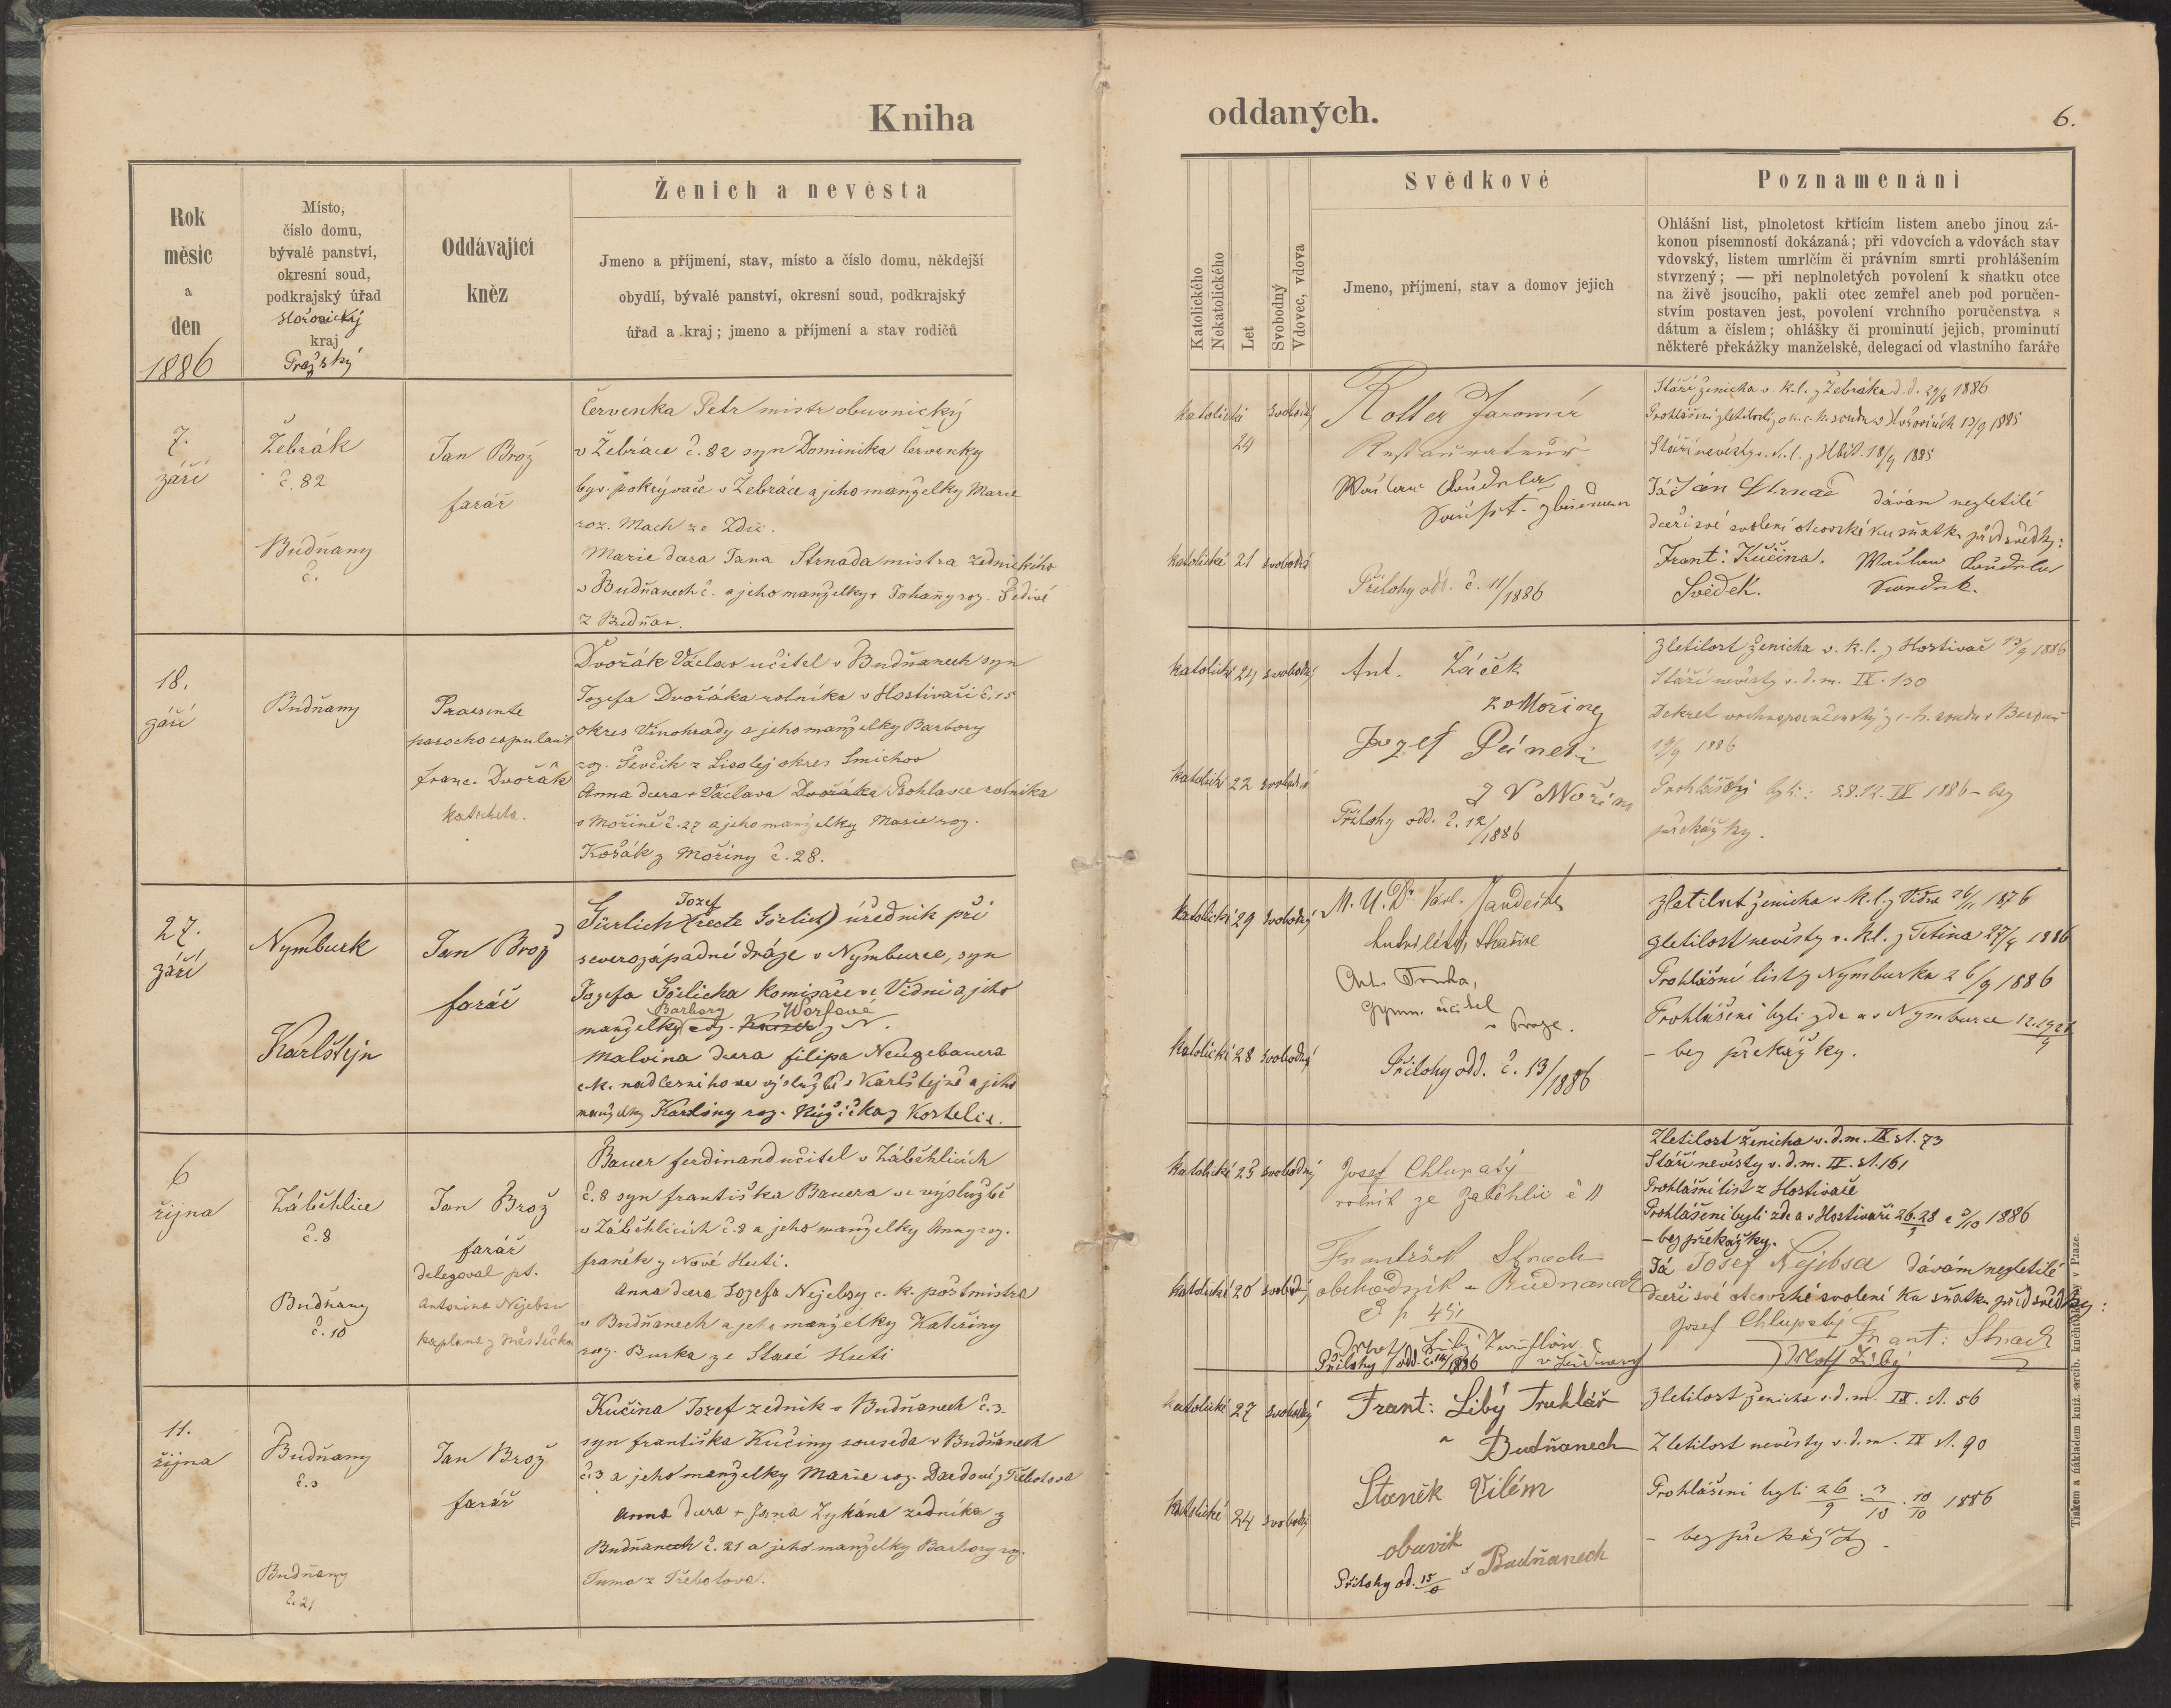 Kniha
oddaných.
6.
Rok
měsíc
a
den
1886
Místo,
číslo domu,
bývalé panství,
okresní soud,
podkrajský úřad
Hořovický
kraj
Pražský
Oddávající
kněz
Ženich a nevěsta
Jmeno a příjmení, stav, místo a číslo domu, někdejší
obydlí, bývalé panství, okresní soud, podkrajský
úřad a kraj; jmeno a příjmení a stav rodičů
Katolického
Nekatolického
Let
Svobodný
Vdovec, vdova
Svědkové
Jmeno, příjmení, stav a domov jejich
Poznamenání
Ohlášní list, plnoletost křtícím listem anebo jinou zá-
konou písemností dokázaná; při vdovcích a vdovách stav
vdovský, listem umrlčím či právním smrti prohlášením
stvrzený; — při neplnoletých povolení k sňatku otce
na živě jsoucího, pakli otec zemřel aneb pod poručen-
stvím postaven jest, povolení vrchního poručenstva s
dátum a číslem; ohlášky či prominutí jejich, prominutí
některé překážky manželské, delegací od vlastního faráře
7.
září
Žebrák
č. 82
Budňany
č.
Jan Brož
farář
Červenka Petr mistr obuvnický
v Žebráce č. 82 syn Dominika Červenky
býv. pokrývače v Žebráce a jeho manželky Marie
roz. Mach ze Zdic.
Marie dcera Jana Strnada mistra zednického
v Budňanech č. a jeho manželky + Johany roz. Šedivé
z Budňan.
katolická
24
svobodný
katolické 21 svobodná
Koller Jaromír
Restaurateur
Přílohy odd. č. 11/1886
Stáří ženicha v. k. l. z Žebráka d. d. 29/8 1886
Prohlášení zletilosti z ok. c. k. soudu v Hořovicích 13/9 1885
Já Jan Strnad dávám nezletilé
dceři své svolení otcovské ku sňatku před svědky:
Frant: Kučina.
Svědek.
18.
září
Budňany
Praesente
parocho copulans
Franc. Dvořák
katecheta.
Dvořák Václav učitel v Budňanech syn
Jozefa Dvořáka rolníka v Hostivaři č. 15
okres Vinohrady a jeho manželky Barbory
roz. Ševčik z Lisolej okres Smíchov
Anna dcera + Václava Dvořáka Pohlavce rolníka
v Mořině č. 27 a jeho manželky Marie roz.
Kořák z Mořiny č. 28.
katolický 24 svobodný
katolick 22 svobodná
Ant. Žáček
z Mořiny
Jozef
Přílohy odd. č. 12/1886
Zletilost ženicha v. k. l. z Hostivař 13/9 1886
Stáří nevěsty v. d. m. IX. 130
Dekret vrchnoporučenský z c. k. soudu v Beroun
1886
Prohlášky byli: 5. 8. 12. IX 1886 - bez
překážky.
27.
září
Nymburk
Karlštejn
Jan Brož
farář
Jozef
Gürlich (recte Görlich) úředník při
severozápadní dráze v Nymburce, syn
Jozefa Görlicha komisaře ve Vídni a jeho
Barbory Worfové
manželky roz. Kaiser z N.
Malvina dcera Filipa Neugebauera
c. k. nadlesního ve výslužbě v Karlštejně a jeho
manželky Karoliny roz. Růžička z Kostelce.
katolické 29 svobodný
katolické 28 svobodná
M. U. Dr. Karl.
Ant. Truhla,
gymn. učitel
v Praze.
Přílohy odd. č. 13/1886
Zletilost ženicha v. k. l. z Vídně 26/11 1876
Zletilost nevěsty v. k. l. z Tetína 27/9 1886
Prohlášní list z Nymburka 26/9 1886
Prohlášeni byli zde a v Nymburce 12. 19. 26/9
- bez překážky.
6
října
Záběhlice
č. 8
Budňany
č. 10
Jan Brož
farář
delegoval pt.
Antonína Nejebsu
kaplana z Městečka
Bauer Ferdinand učitel v Záběhlicích
č. 8 syn Františka Bauera ve výslužbě
v Záběhlicích č. 8 a jeho manželky Anny roz.
Franěk z Nové Huti.
Anna dcera Jozefa Nejebsy c. k. poštmistra
v Budňanech a jeho manželky Kateřiny
roz. Burka ze Staré Huti
katolické 25 svobodný
katolické 20 svobodný
Josef Chlupatý
rolník ze Zaběhlic č 11
František Strach
obchodník v Budnanech
č p 45
Přílohy odd. č. 14/1886
Zletilost ženicha v. d. m. IX st. 73
Stáří nevěsty v. d. m. IX. st. 161
Prohlášní list z Hostivaře
Prohlášeni byli zde a v Hostivaři 26. 28/9 a 3/10 1886
- bez překážky.
Já Josef Nejebsa dávám nezletilé
dceři své otcovské svolení ku sňatku před svědky:
Josef Chlupatý
Frant: Strach
11.
října
Budňany
č. 3
Budňany
č. 21
Jan Brož
farář
Kučina Jozef zedník v Budňanech č. 3.
syn Františka Kučiny souseda v Budňanech
č. 3 a jeho manželky Marie roz. Daedové z Třebotova
Anna dcera + Jana Zykána zedníka z
Budňanech č. 21 a jeho manželky Barbory roz.
Tuma z Třebotova.
katolické 27 svobodný
katolické 24 svobodý
Frant: Libý Truhlář
v Budňanech
Staněk Vilém
obuvík
v Budňanech
Přílohy od. 15/6
Zletilost ženicha v. d. m. IX. st. 56
Zletilost nevěsty v. d. m. IX st. 90
Prohlášeni byli 26/9 . 3/10 . 10/10 1886
- bez překážky.
Tiskem a nákladem kníž. arcib. kněhtiskárny v Praze.